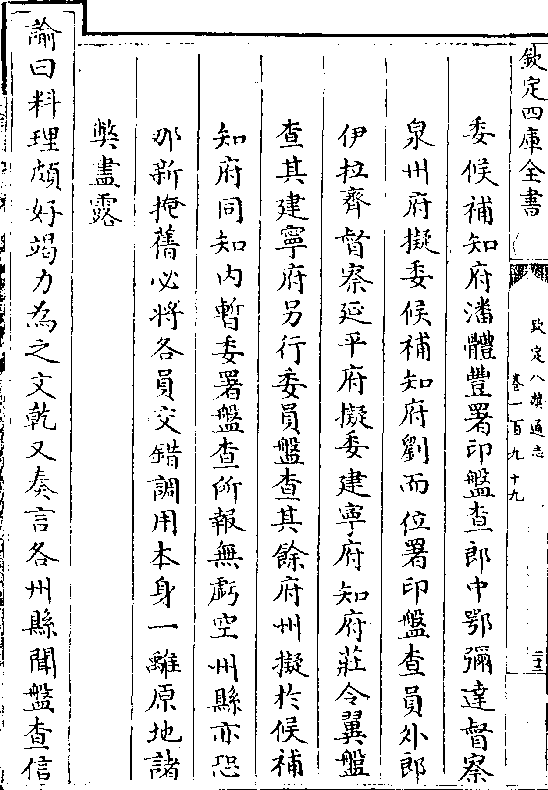 欽定四庫全書
欽定八旗通志
卷一百九十九
二三
委候補知府潘體豐署印盤查郎中鄂彌達督察
泉州府擬委候補知府劉而位署印盤查員外郎
伊拉齊督察延平府擬委建寧府知府莊令翼盤
查其建寧府另行委員盤查其餘府州擬於候補
知府同知内暫委署盤查所報無虧空州縣亦恐
那新掩舊必將各員交錯調用本身一離原地諸
弊盡露
諭曰料理頗好竭力為之文乾又奏言各州縣聞盤查信